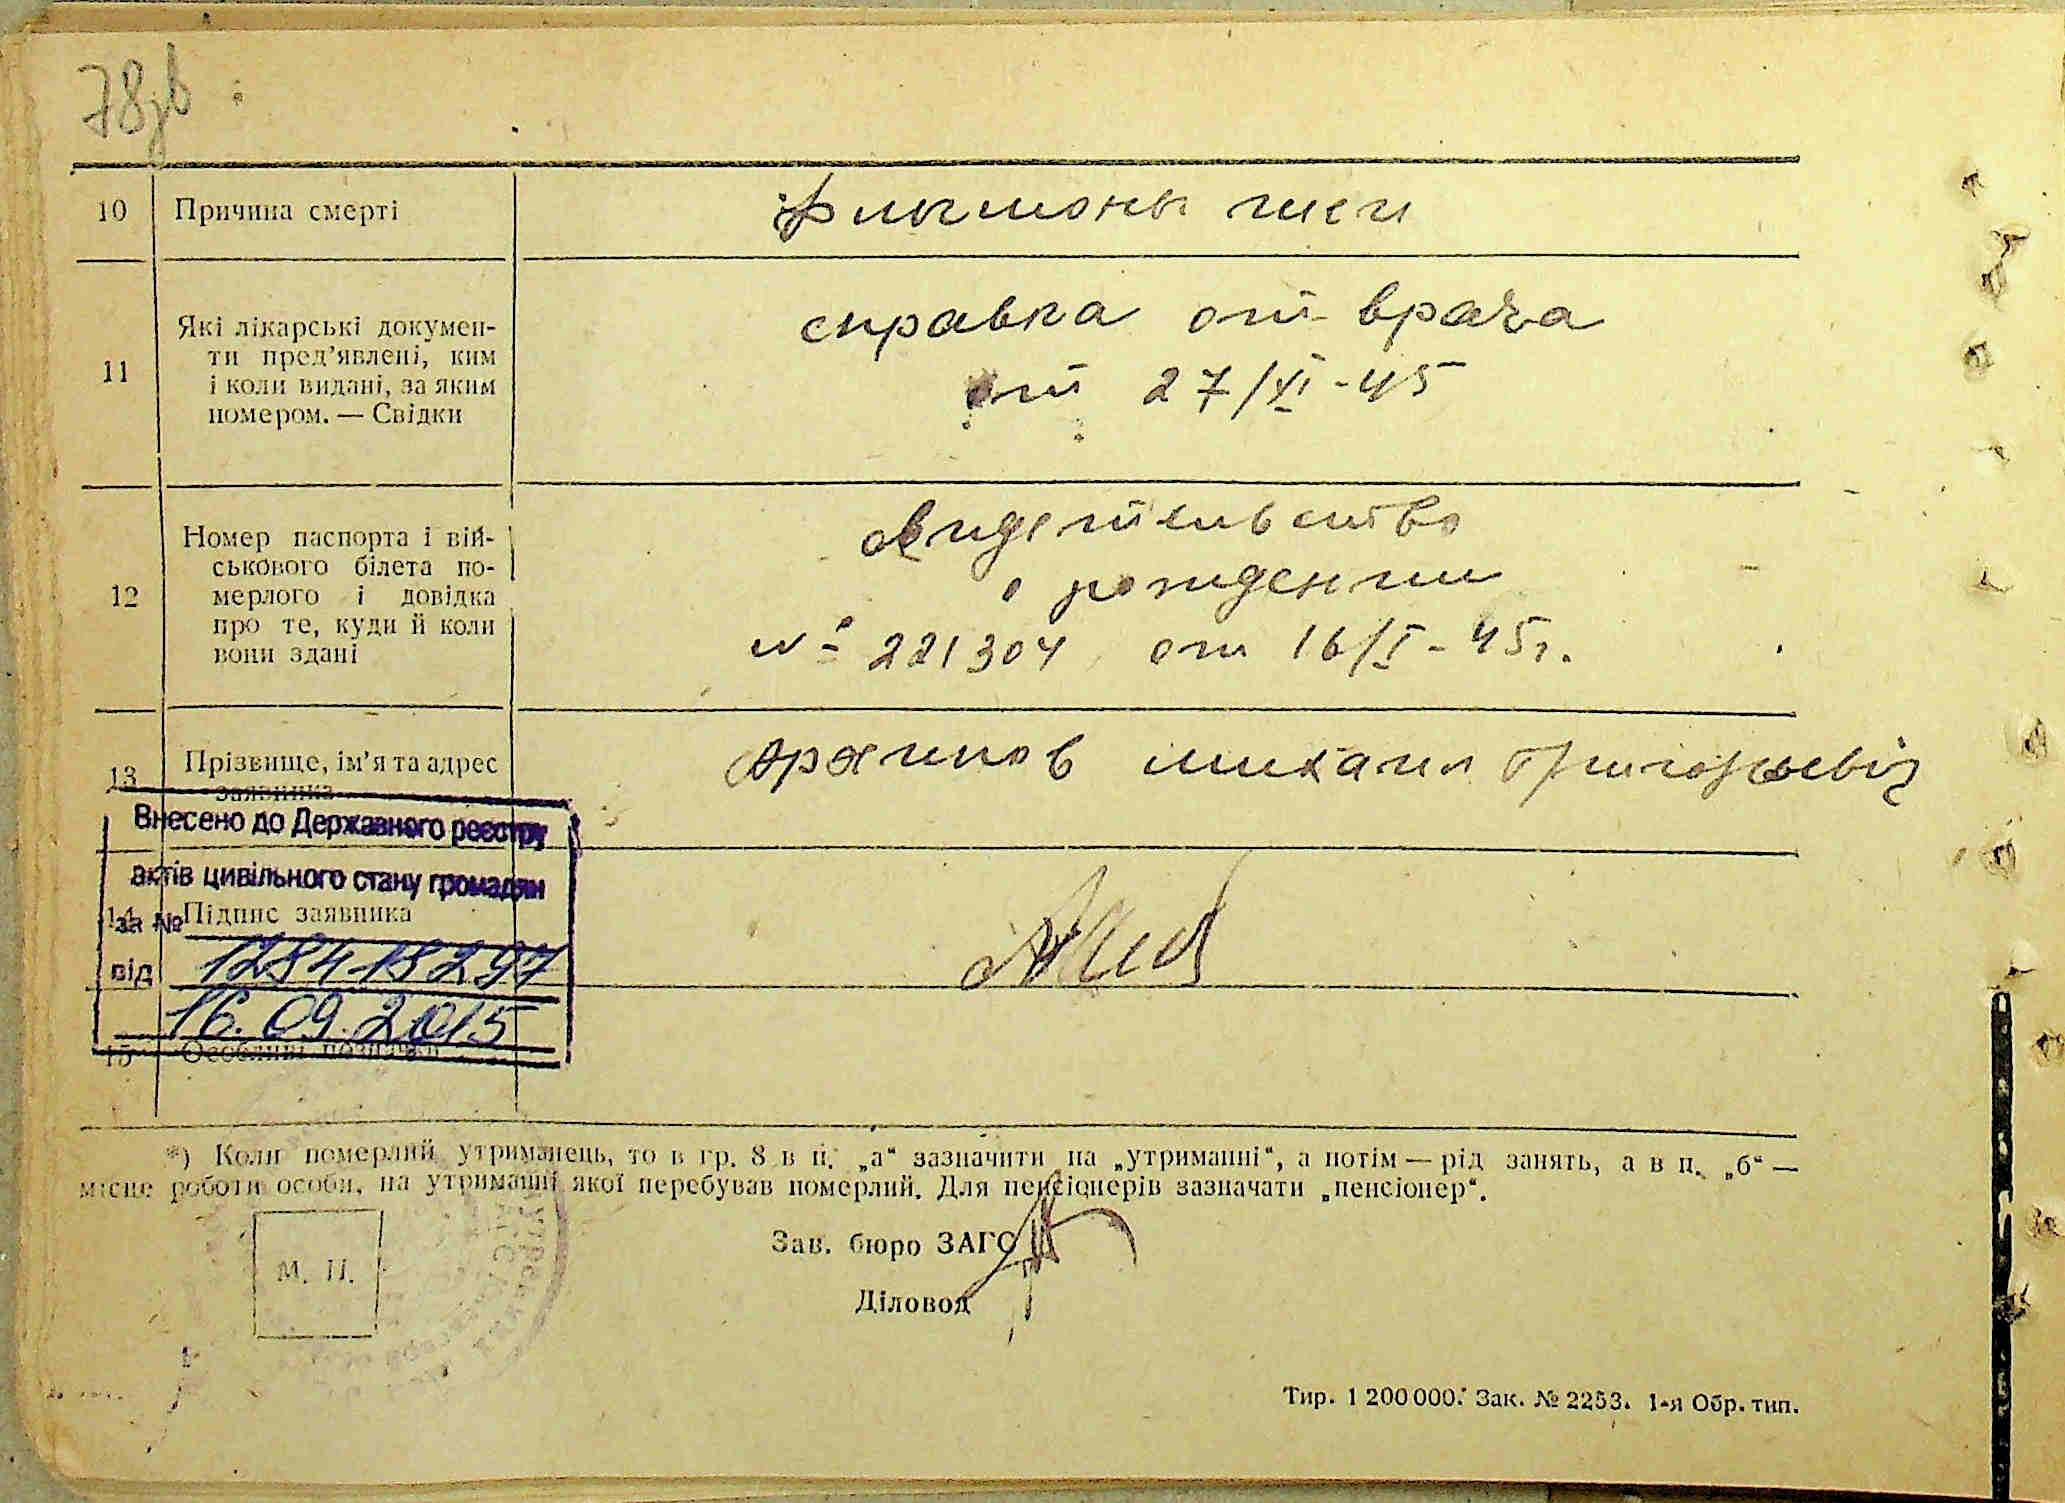 78зв
10 Причина смерті
Флегмона шеи
11 Які лікарські докумен-
ти пред'явлені, ким
і коли видані, за яким
номером. — Свідки
справка от врача
от 27/XI-45
12 Номер паспорта і вій-
ськового білета по-
мерлого і довідка
про те, куди й коли
вони здані
свидетельство
о рождении
№ 221304 от 16/I-45г.
13 Прізвище, ім'я та адрес
заявника
Михаил Григорьевич
Внесено до Державного реєстру
актів цивільного стану громадян
за № 128418297
від 16.09.2015
14 Підпис заявника
15 Особливі позначки
*) Коли померлий утриманець, то в гр. 8 в п. „а“ зазначити на „утриманні“, а потім — рід занять, а в п. „б“ —
місце роботи особи, на утриманні якої перебував померлий. Для пенсіонерів зазначати „пенсіонер“.
М. П.
Зав. бюро ЗАГС
Діловод
Тир. 1 200 000. Зак. № 2253. 1-я Обр. тип.